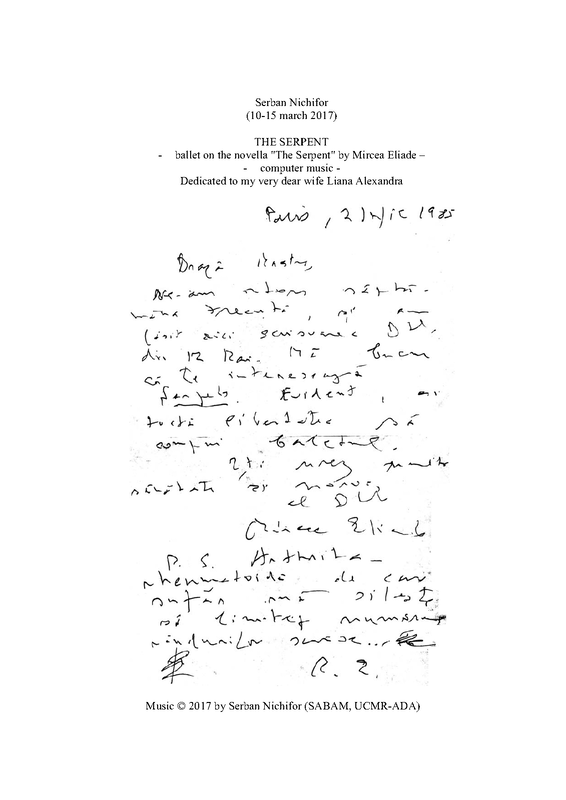 Serban Nichifor
(10-15 march 2017)
THE SERPENT
- ballet on the novella "The Serpent" by Mircea Eliade –
- computer music -
Dedicated to my very dear wife Liana Alexandra
Paris, 2 1985
Dragă
Ne-am
trecută, și am
aici scrisoarea Dtă.
din 12 Mai. Mă bucur
că te interesează
Șarpele. Evident, ai
toată libertatea să
compui baletul.
Îți urez multă
sănătate și noroc,
al Dtă
Mircea Eliade
P.S. Arthrita
rheumatoidă de care
sufăr mă silește
să limitez numărul
rândurilor scrise...
M. E.
Music © 2017 by Serban Nichifor (SABAM, UCMR-ADA)